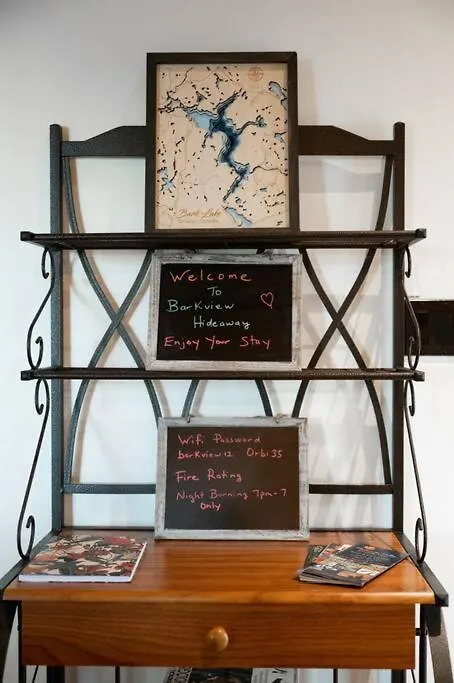 Bark Lake
Welcome
To
Barkview
Hideaway
Enjoy Your Stay
Wifi Password
barkview12 Orbi35
Fire Rating
Night Burning 7pm-7
Only